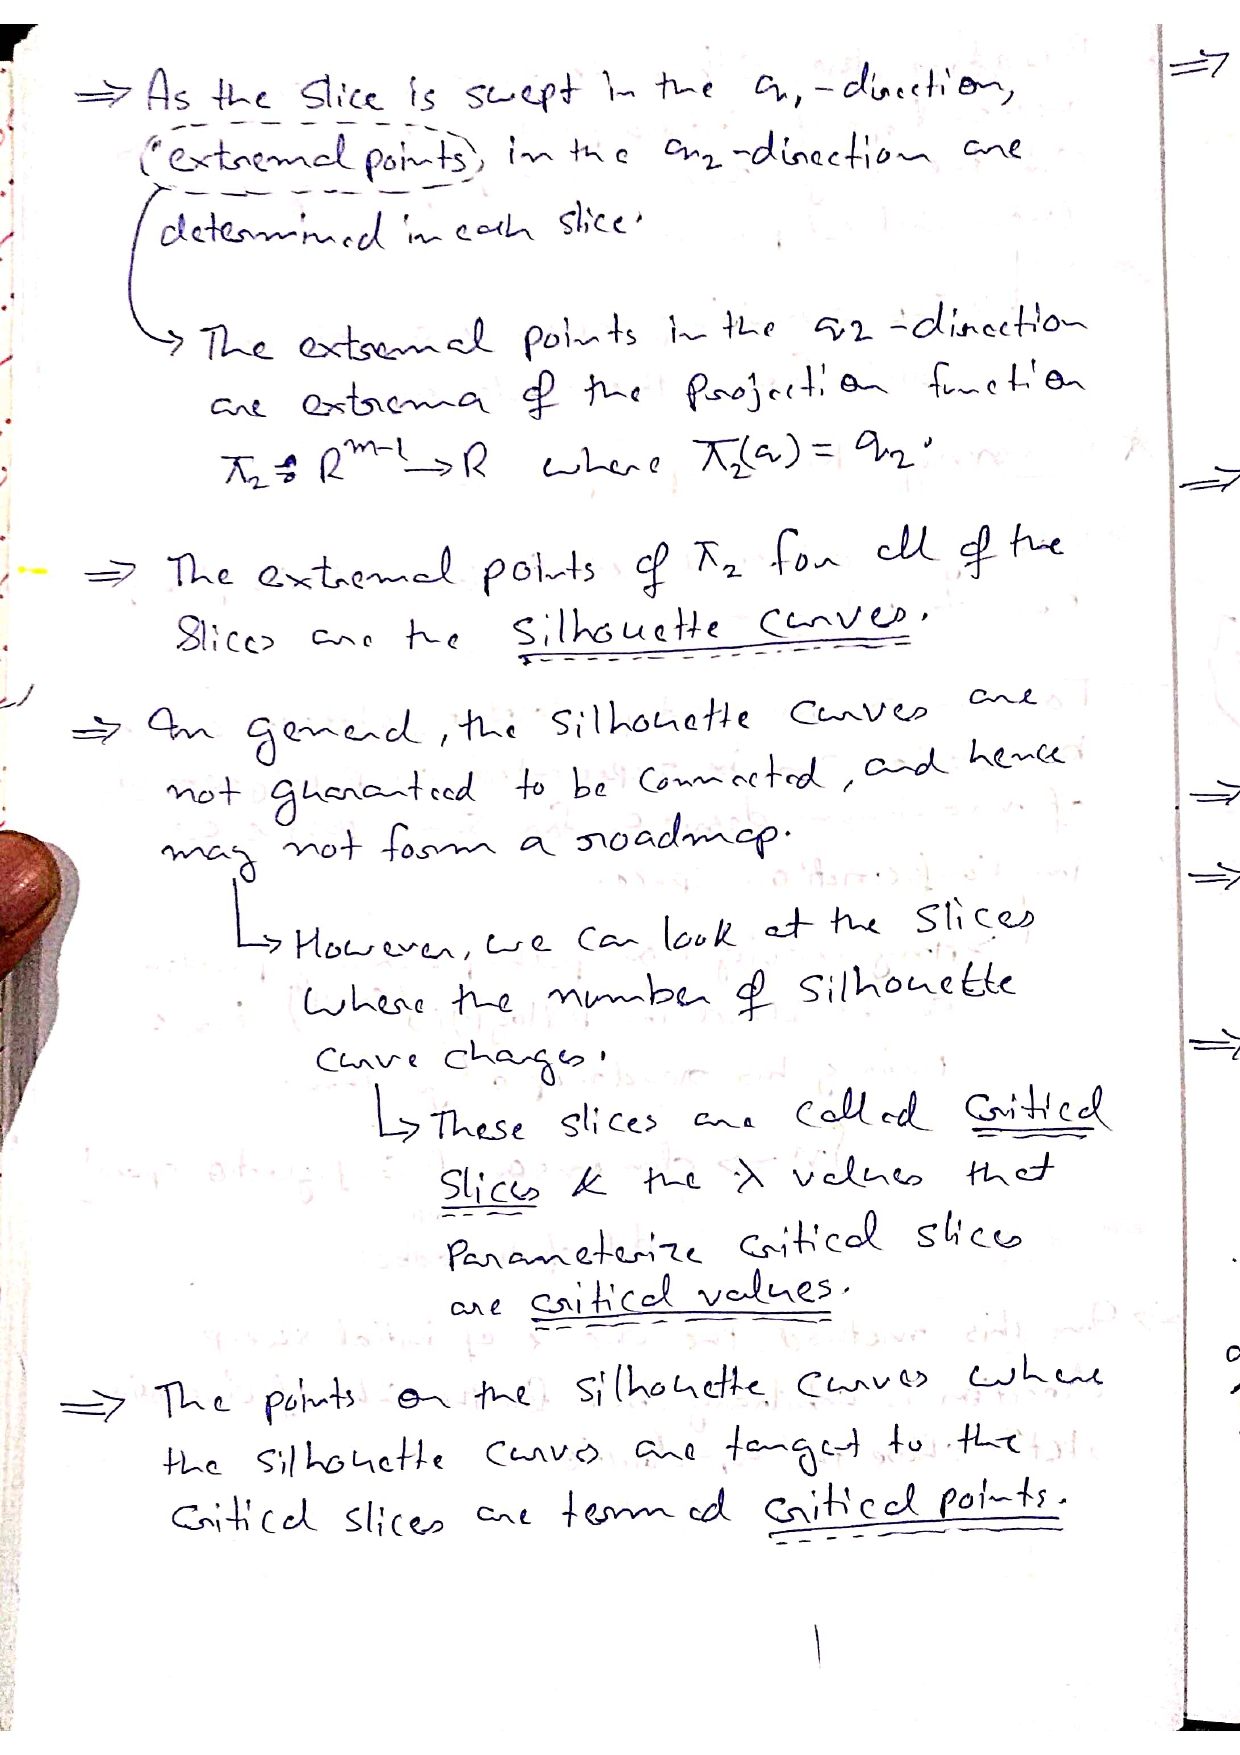 ⇒ As the slice is swept in the q₁-direction,
"extremal points" in the q₂-direction are
determined in each slice.
↳ The extremal points in the q₂-direction
are extrema of the projection function
π₂ : R^{m-1} → R where π₂(q) = q₂.
⇒ The extremal points of π₂ for all of the
Slices are the Silhouette curves.
⇒ In general, the silhouette curves are
not guaranteed to be connected, and hence
may not form a roadmap.
↳ However, we can look at the slices
where the number of silhouette
curve changes.
↳ These slices are called critical
slices & the λ values that
Parameterize critical slices
are critical values.
⇒ The points on the silhouette curves where
the silhouette curves are tangent to the
critical slices are termed critical points.